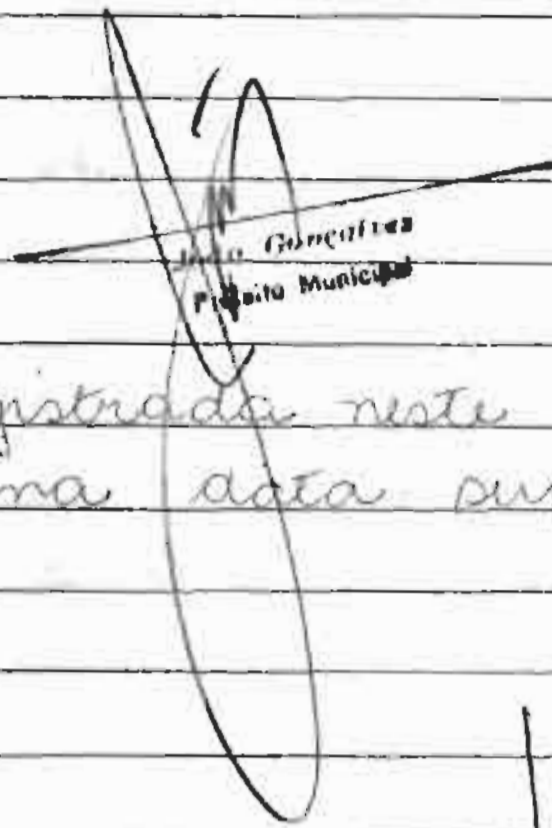 João Gonçalves
Prefeito Municipal
gistrada neste
na data su